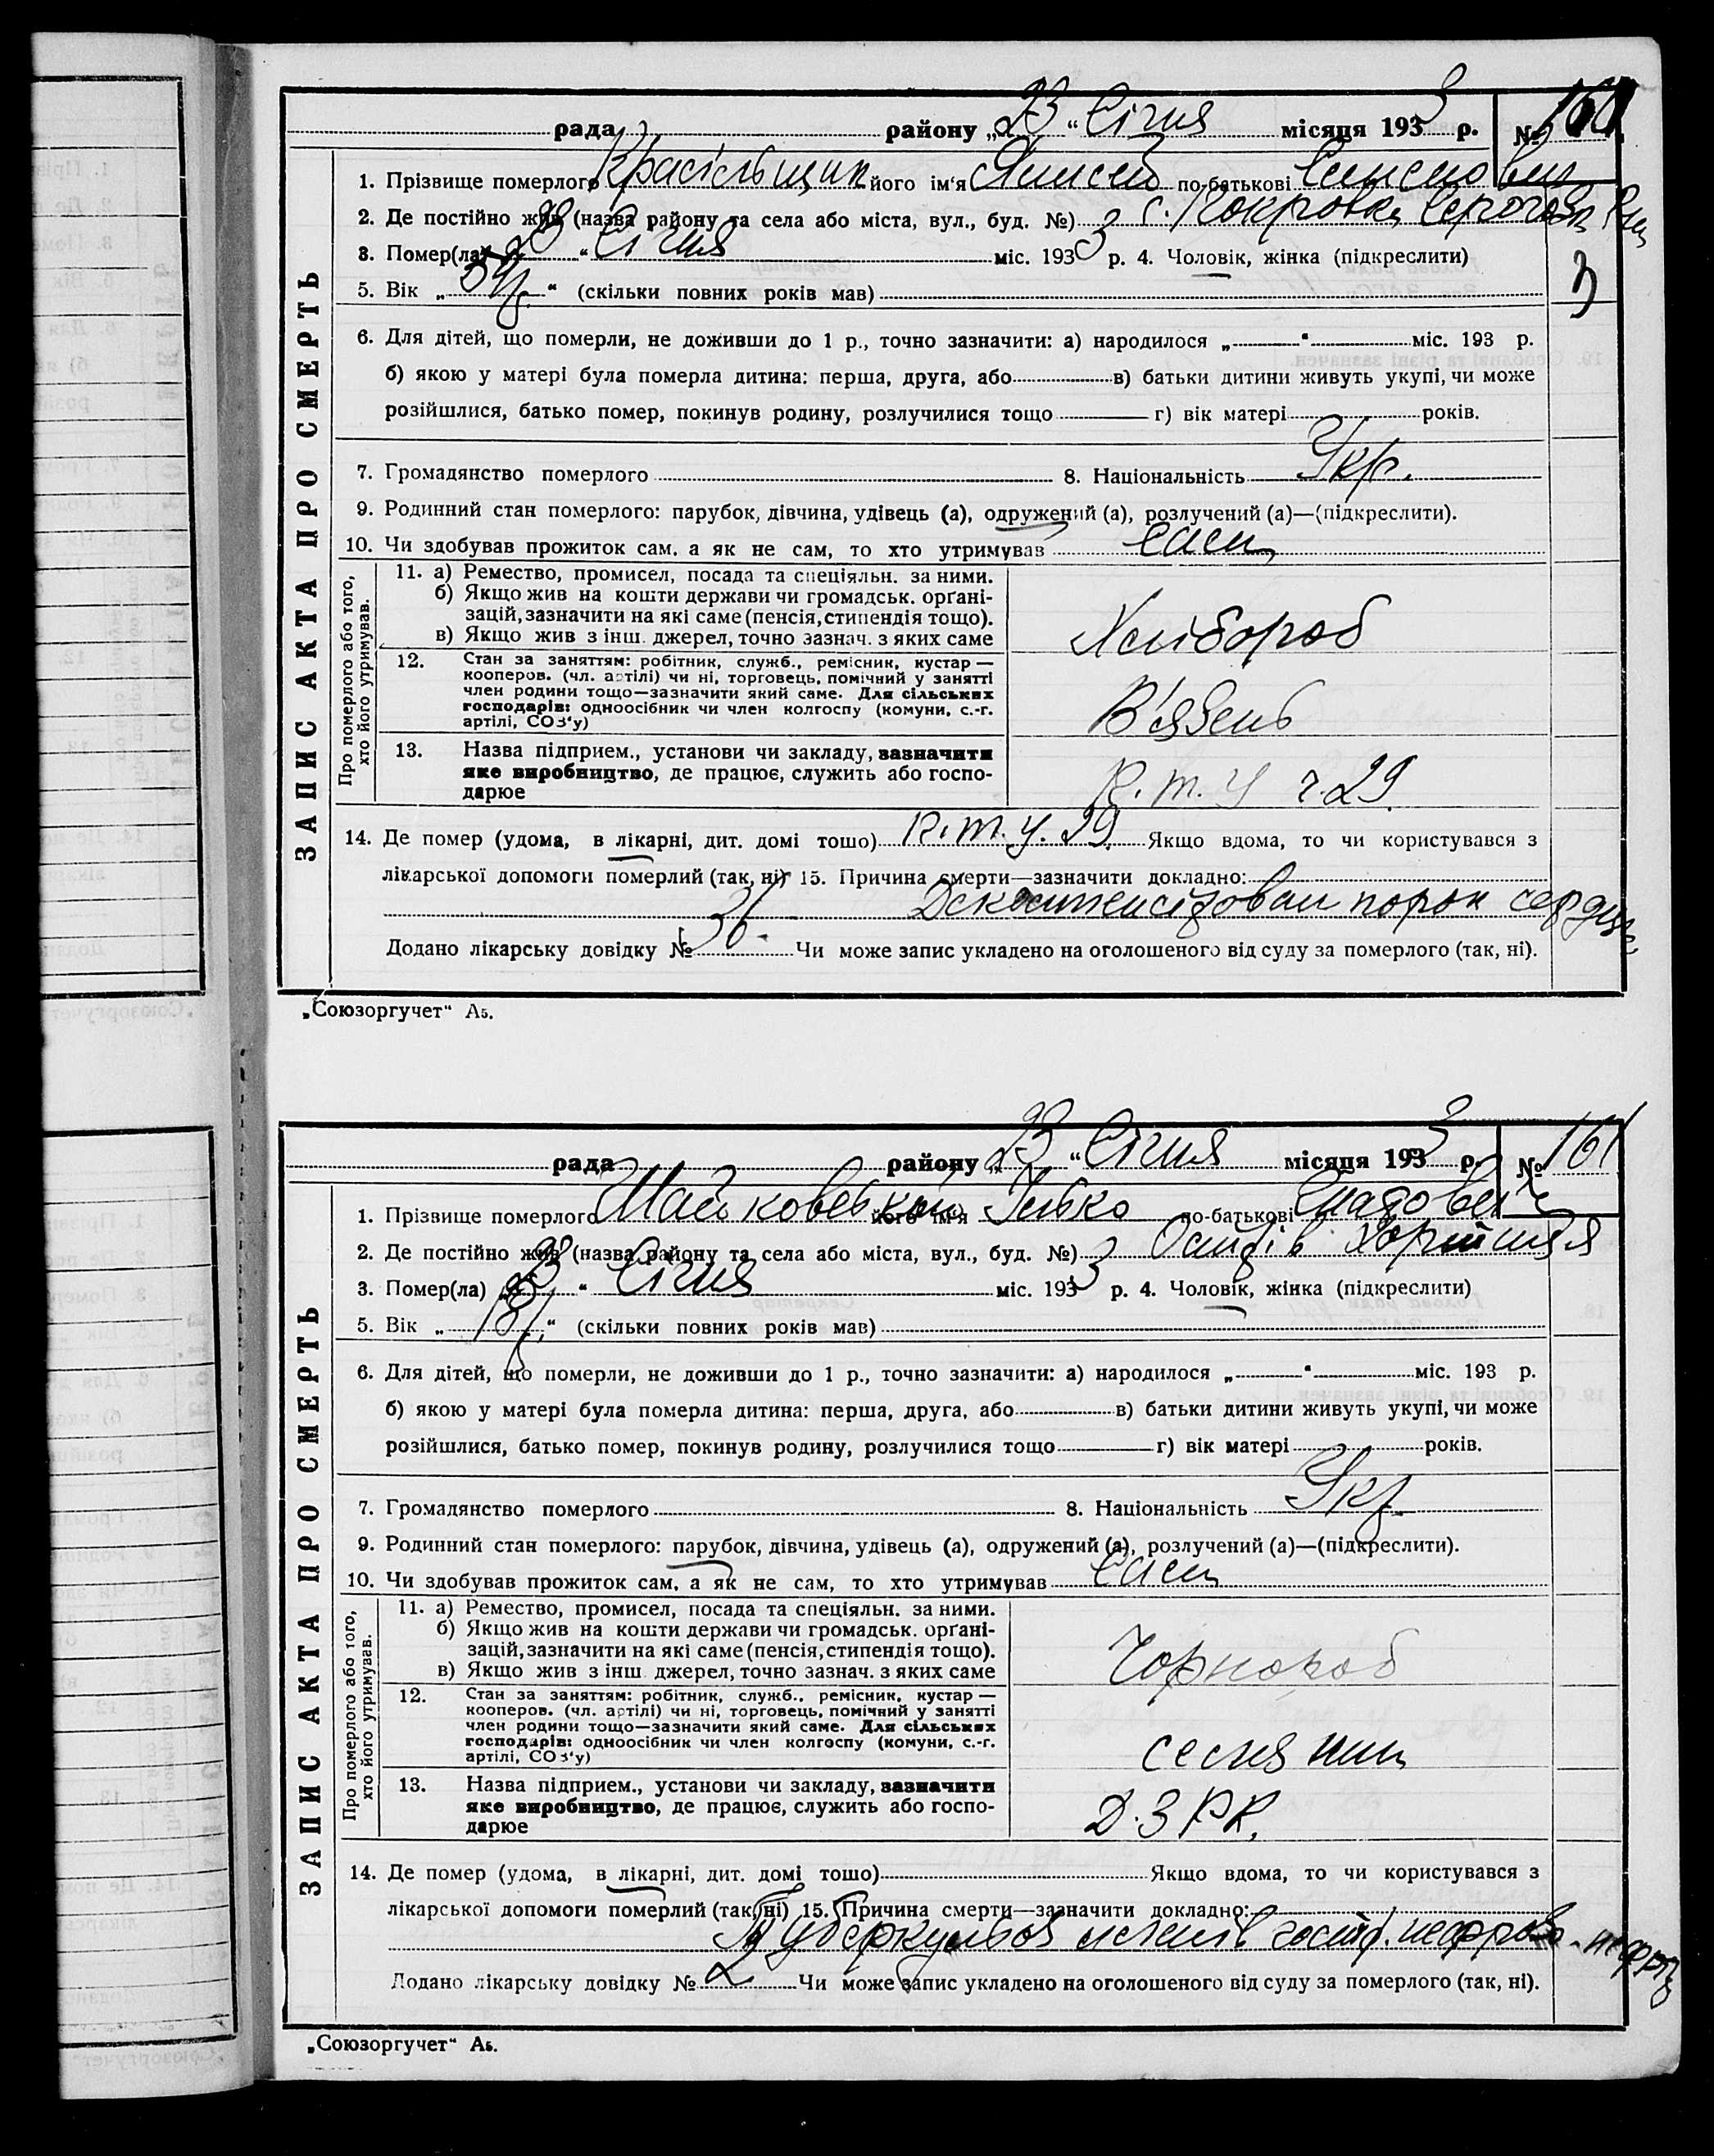 рада району „23“ Січня місяця 1933 р. № 160
1. Прізвище померлого Красільщик його ім‘я по-батькові
2. Де постійно жив (назва району та села або міста, вул., буд. №) з с. Покровка
3. Помер(ла) „23“ Січня міс. 1933 р. 4. Чоловік, жінка (підкреслити)
5. Вік „ “ (скільки повних років мав)
6. Для дітей, що померли, не доживши до 1 р., точно зазначити: а) народилося „ “ міс. 193 р.
б) якою у матері була померла дитина: перша, друга, або в) батьки дитини живуть укупі, чи може
розійшлися, батько помер, покинув родину, розлучилися тощо г) вік матері років.
7. Громадянство померлого 8. Національність Укр.
9. Родинний стан померлого: парубок, дівчина, удівець (а), одружений (а), розлучений (а)—(підкреслити).
10. Чи здобував прожиток сам, а як не сам, то хто утримував сам
11. а) Ремество, промисел, посада та спеціяльн. за ними.
б) Якщо жив на кошти держави чи громадськ. орґані-
зацій, зазначити на які саме (пенсія, стипендія тощо).
в) Якщо жив з інш. джерел, точно зазнач. з яких саме
Хлібороб
12. Стан за заняттям: робітник, служб., ремісник, кустар —
кооперов. (чл. артілі) чи ні, торговець, помічний у занятті
член родини тощо—зазначити який саме. Для сільських
господарів: одноосібник чи член колгоспу (комуни, с.-г.
артілі, СОЗ‘у)
В'язень
13. Назва підприєм., установи чи закладу, зазначити
яке виробництво, де працює, служить або госпо-
дарює
К.т.у ч.29
Про померлого або того,
хто його утримував.
14. Де помер (удома, в лікарні, дит. домі тошо) К.т.у. 29 Якщо вдома, то чи користувався з
лікарської допомоги померлий (так, ні) 15. Причина смерти—зазначити докладно:
порок
Додано лікарську довідку № 36 Чи може запис укладено на оголошеного від суду за померлого (так, ні).
ЗАПИС АКТА ПРО СМЕРТЬ
„Союзоргучет“ А5.
рада району „23“ Січня місяця 1933 р. № 161
1. Прізвище померлого його ім‘я Ілько по-батькові
2. Де постійно жив (назва району та села або міста, вул., буд. №) з
3. Помер(ла) „23“ Січня міс. 1933 р. 4. Чоловік, жінка (підкреслити)
5. Вік „ “ (скільки повних років мав)
6. Для дітей, що померли, не доживши до 1 р., точно зазначити: а) народилося „ “ міс. 193 р.
б) якою у матері була померла дитина: перша, друга, або в) батьки дитини живуть укупі, чи може
розійшлися, батько помер, покинув родину, розлучилися тощо г) вік матері років.
7. Громадянство померлого 8. Національність Укр.
9. Родинний стан померлого: парубок, дівчина, удівець (а), одружений (а), розлучений (а)—(підкреслити).
10. Чи здобував прожиток сам, а як не сам, то хто утримував сам
11. а) Ремество, промисел, посада та спеціяльн. за ними.
б) Якщо жив на кошти держави чи громадськ. орґані-
зацій, зазначити на які саме (пенсія, стипендія тощо).
в) Якщо жив з інш. джерел, точно зазнач. з яких саме
Чорнороб
12. Стан за заняттям: робітник, служб., ремісник, кустар —
кооперов. (чл. артілі) чи ні, торговець, помічний у занятті
член родини тощо—зазначити який саме. Для сільських
господарів: одноосібник чи член колгоспу (комуни, с.-г.
артілі, СОЗ‘у)
селянин
13. Назва підприєм., установи чи закладу, зазначити
яке виробництво, де працює, служить або госпо-
дарює
Д.З РК.
Про померлого або того,
хто його утримував.
14. Де помер (удома, в лікарні, дит. домі тошо) Якщо вдома, то чи користувався з
лікарської допомоги померлий (так, ні) 15. Причина смерти—зазначити докладно:
Туберкульоз
Додано лікарську довідку № 2 Чи може запис укладено на оголошеного від суду за померлого (так, ні).
ЗАПИС АКТА ПРО СМЕРТЬ
„Союзоргучет“ А5.